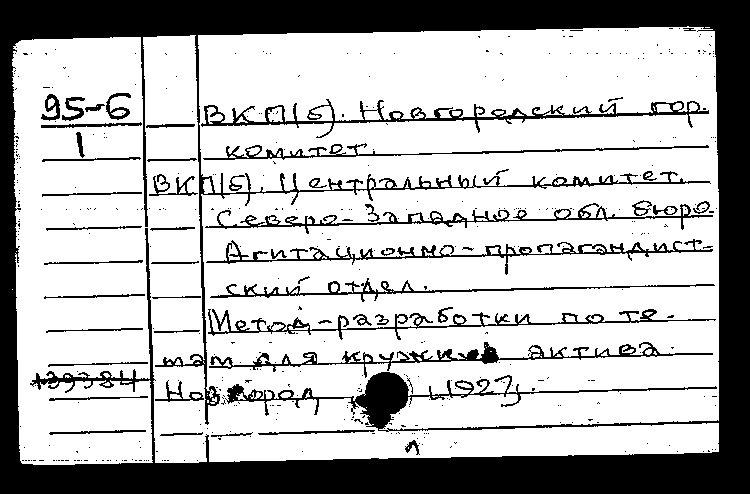 95-6
1
ВКП(б). Новгородский гор.
комитет.
ВКП(б). Центральный комитет.
Северо-Западное обл. бюро
Агитационно-пропагандист-
ский отдел.
Метод-разработки по те-
мам для кружков актива.
139384
Новгород, [1927].